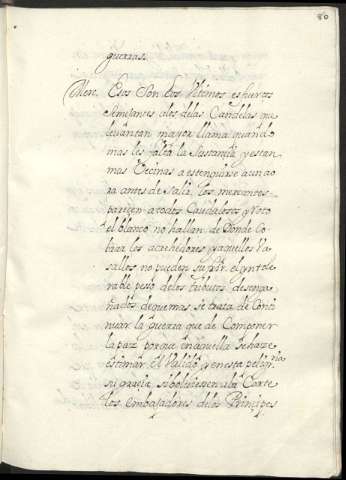 80
guerras.
Merc. Esos Son los Ultimos esfuerços
semejantes alos delas Candelas que
levantan mayor llama quando
mas les falta la Sustancia y estan
mas Vecinas a estinguirse aun ao
ra antes de salir los mercantes
parecen atodos Caudalosos y Roto
el blanco no hallan de Donde Co
brar los acrehedores y aquellos Va
sallos no pueden sufrir el yntole
rable peso delos tributos desenga
ñados de que mas se trata de Conti
nuar la guerra que de Componer
la paz porque en aquella se haze
estimar el Valido y en esta peligra
su gracia si bolviesen ala Corte
los embajadores delos Principes